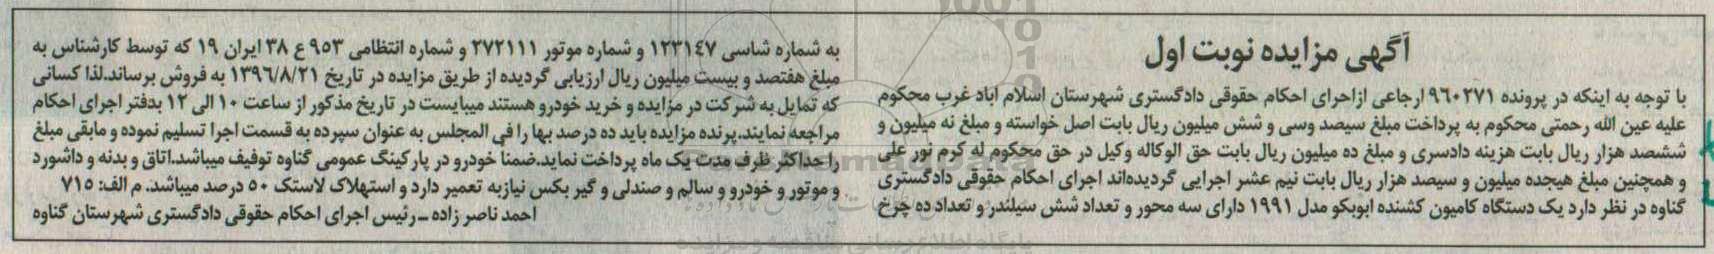 آگهی مزایده نوبت اول
با توجه به اینکه در پرونده ۹۶۰۲۷۱ ارجاعی ازاحرای احکام حقوقی دادگستری شهرستان اسلام آباد غرب محکوم
علیه عین الله رحمتی محکوم به پرداخت مبلغ سیصد وسی و شش میلیون ریال بابت اصل خواسته و مبلغ نه میلیون و
ششصد هزار ریال بابت هزینه دادسری و مبلغ ده میلیون ریال بابت حق الوکاله وکیل در حق محکوم له کرم نور علی
و همچنین مبلغ هیجده میلیون و سیصد هزار ریال بابت نیم عشر اجرایی گردیده‌اند اجرای احکام حقوقی دادگستری
گناوه در نظر دارد یک دستگاه کامیون کشنده ابویکو مدل ۱۹۹۱ دارای سه محور و تعداد شش سیلندر و تعداد ده چرخ
به شماره شاسی ۱۲۳۱٤۷ و شماره موتور ۲۷۲۱۱۱ و شماره انتظامی ۹۵۳ ع ۳۸ ایران ۱۹ که توسط کارشناس به
مبلغ هفتصد و بیست میلیون ریال ارزیابی گردیده از طریق مزایده در تاریخ ۱۳۹٦/۸/۲۱ به فروش برساند.لذا کسانی
که تمایل به شرکت در مزایده و خرید خودرو هستند میبایست در تاریخ مذکور از ساعت ۱۰ الی ۱۲ بدفتر اجرای احکام
مراجعه نمایند.برنده مزایده باید ده درصد بها را فی المجلس به عنوان سپرده به قسمت اجرا تسلیم نموده و مابقی مبلغ
را حداکثر ظرف مدت یک ماه پرداخت نماید.ضمنا خودرو در پارکینگ عمومی گناوه توقیف میباشد.اتاق و بدنه و داشبورد
و موتور و خودرو و سالم و صندلی و گیر بکس نیازبه تعمیر دارد و استهلاک لاستک ۵۰ درصد میباشد. م الف: ۷۱۵
احمد ناصر زاده ـ رئیس اجرای احکام حقوقی دادگستری شهرستان گناوه